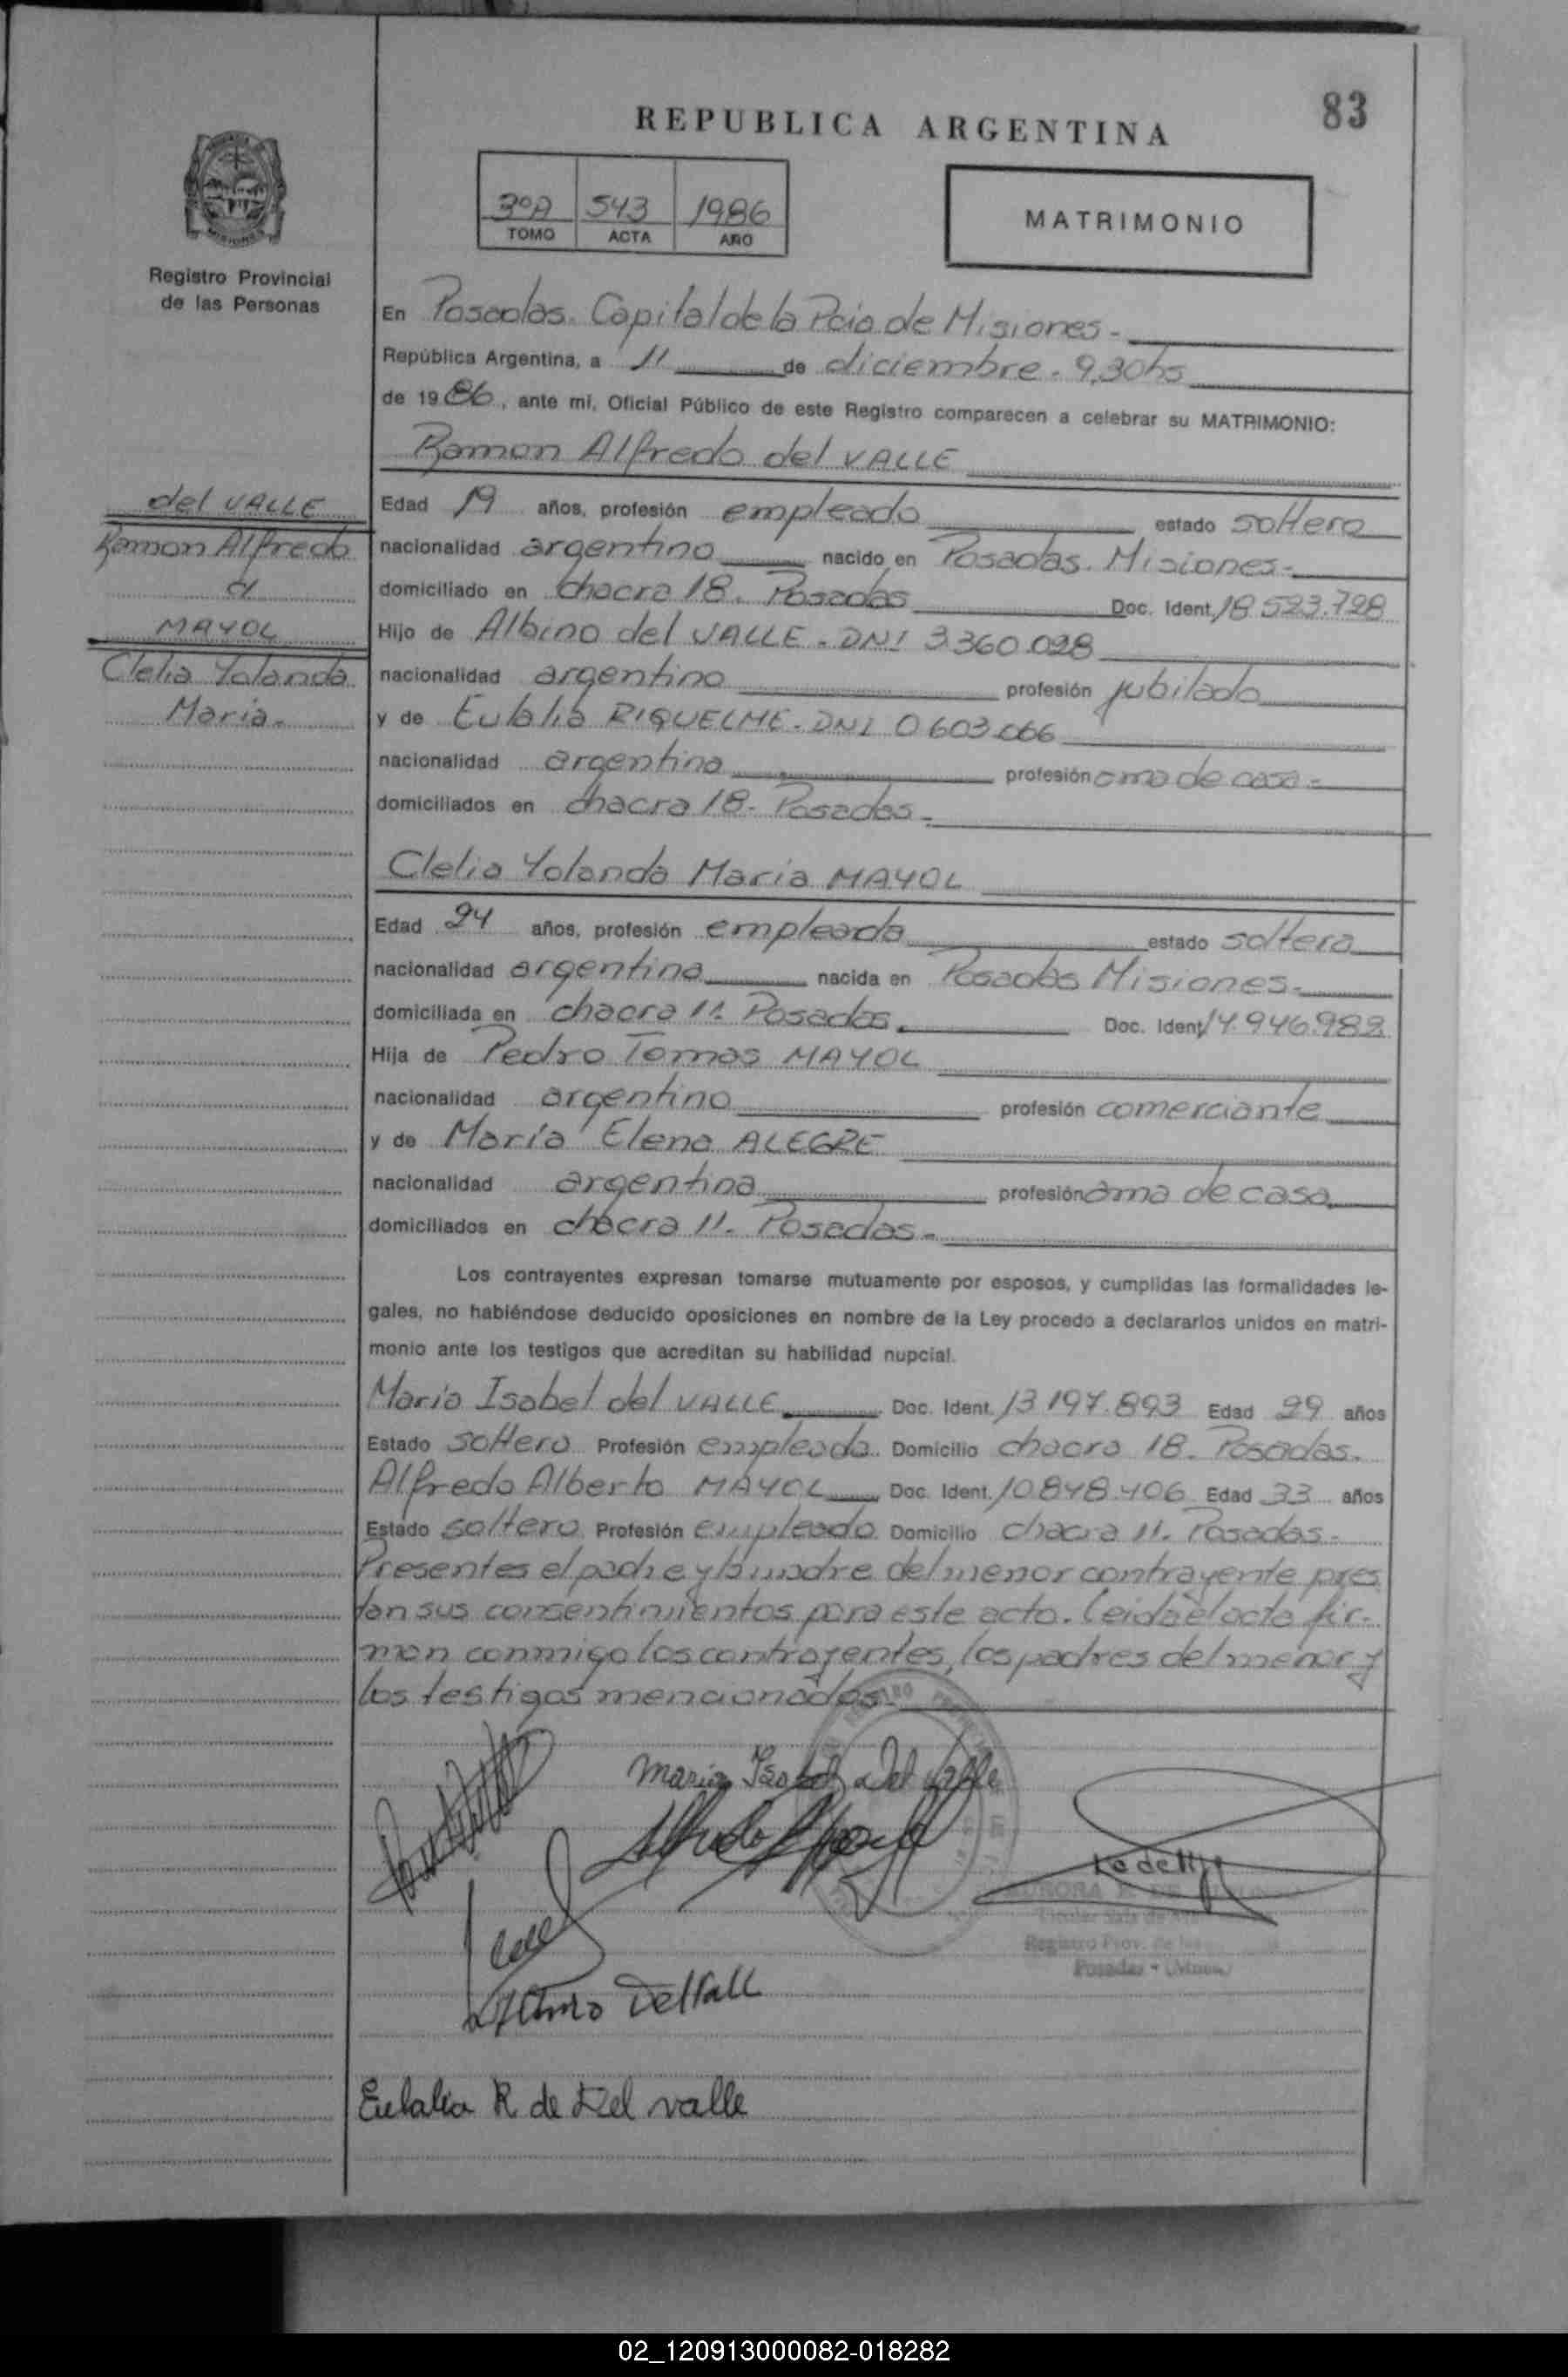 83
REPUBLICA ARGENTINA
3ºA 543 1986
TOMO ACTA AÑO
MATRIMONIO
MISIONES
Registro Provincial
de las Personas
En Posadas. Capital de la Pcia de Misiones.-
República Argentina, a 11 de diciembre. 9,30hs
de 1986, ante mi, Oficial Público de este Registro comparecen a celebrar su MATRIMONIO:
Ramon Alfredo del VALLE
del VALLE
Ramon Alfredo
MAYOL
Clelia Yolanda
Maria.
Edad 19 años, profesión empleado estado soltero
nacionalidad argentino nacido en Posadas. Misiones.-
domiciliado en chacra 18. Posadas Doc. Ident. 18.523.728
Hijo de Albino del VALLE. DNI 3.360.028
nacionalidad argentino profesión jubilado
y de Eulalia RIQUELME. DNI 0603.066
nacionalidad argentina profesión ama de casa.-
domiciliados en chacra 18. Posadas.-
Clelia Yolanda Maria MAYOL
Edad 24 años, profesión empleada estado soltera
nacionalidad argentina nacida en Posadas Misiones.-
domiciliada en chacra 11. Posadas. Doc. Ident. 14.946.982
Hija de Pedro Tomas MAYOL
nacionalidad argentino profesión comerciante
y de María Elena ALEGRE
nacionalidad argentina profesión ama de casa.
domiciliados en chacra 11. Posadas.-
Los contrayentes expresan tomarse mutuamente por esposos, y cumplidas las formalidades le-
gales, no habiéndose deducido oposiciones en nombre de la Ley procedo a declararlos unidos en matri-
monio ante los testigos que acreditan su habilidad nupcial.
Maria Isabel del VALLE Doc. Ident. 13.197.893 Edad 29 años
Estado soltera Profesión empleada. Domicilio chacra 18. Posadas.
Alfredo Alberto MAYOL Doc. Ident. 10.848.406 Edad 33 años
Estado soltero Profesión empleado Domicilio chacra 11. Posadas.-
Presentes el padre y la madre del menor contrayente pres
tan sus consentimientos para este acto. Leida el acta fir-
man conmigo los contrayentes, los padres del menor y
los testigos mencionados.-
Maria Isabel Del Valle
Registro Prov. de las
Posadas
Eulalia R de Del valle
02_120913000082-018282